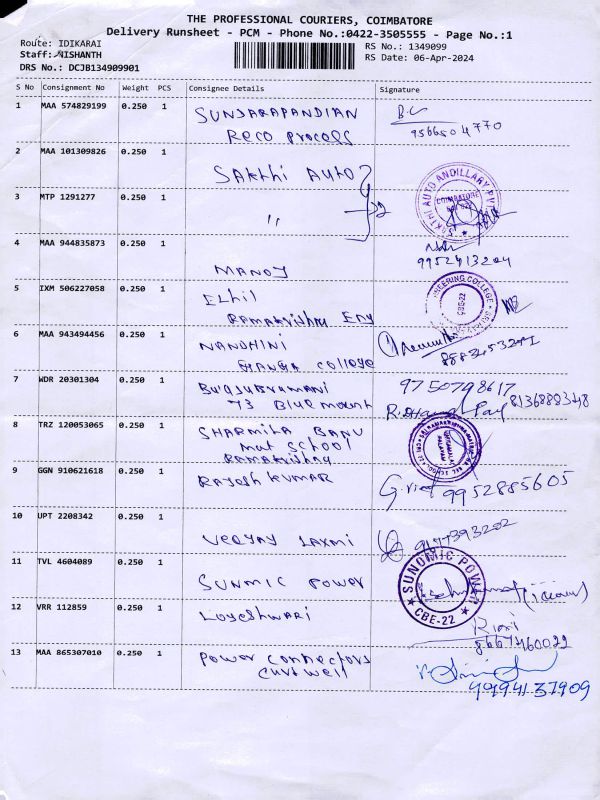 THE PROFESSIONAL COURIERS, COIMBATORE
Delivery Runsheet - PCM - Phone No.:0422-3505555 - Page No.:1
Route: IDIKARAI
RS No.: 1349099
Staff: NISHANTH
RS Date: 06-Apr-2024
DRS No.: DCJB134909901
S No Consignment No Weight PCS Consignee Details Signature
1 MAA 574829199 0.250 1 SUNDARAPANDIAN
Reco process
9566504770
2 MAA 101309826 0.250 1 SAKthi AUTO
SAKTHI AUTO ANCILLARY PVT
COIMBATORE
3 MTP 1291277 0.250 1 "
2
4 MAA 944835873 0.250 1 MANOJ
9952413204
5 IXM 506227058 0.250 1 ELhil
Ramakrishna Eng
CBE-22
6 MAA 943494456 0.250 1 NANDHINI
GANGA College
7 WDR 20301304 0.250 1 BalaSubramani
73 Blue mount
9750798617
8 TRZ 120053065 0.250 1 SHARMILA BANU
mat School
Ramakrishna
9 GGN 910621618 0.250 1 Rajesh Kumar
9952885605
10 UPT 2208342 0.250 1 Veejay Laxmi
11 TVL 4604089 0.250 1 SUNMIC POWER
SUNOMIC POWER
CBE-22
12 VRR 112859 0.250 1 Logeshwari
8667460022
13 MAA 865307010 0.250 1 Power Connectors
Curt well